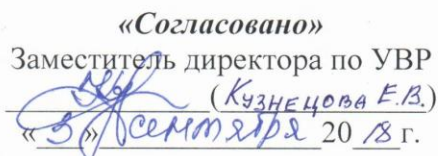 «Согласовано»
Заместитель директора по УВР
(Кузнецова Е.В.)
«3» сентября 2018 г.